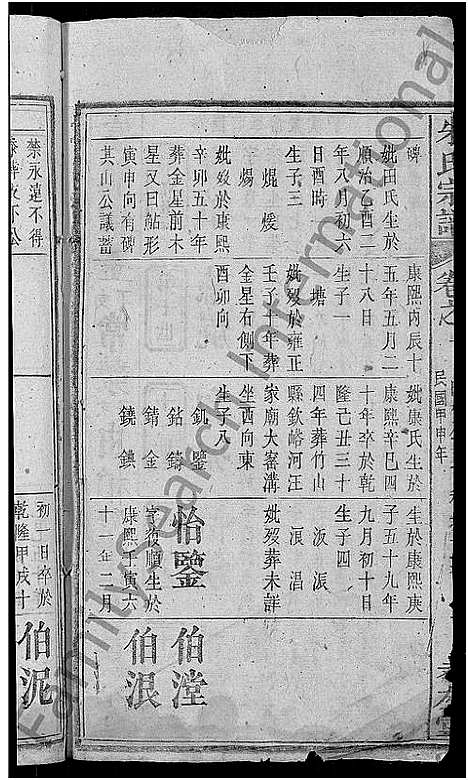 朱氏宗譜
卷之一
民國甲申年
碑
妣田氏生於
順治乙酉二
年八月初六
日酉時
生子三
焜 煖
煬
妣歿於康熙
辛卯五十年
葬金星前木
星又曰鮎形
寅申向有碑
其山公議蓄
康熙丙辰十
五年五月二
十八日
生子一
塘
妣歿於雍正
壬子十年葬
金星右側下
酉卯向
妣康氏生於
康熙辛巳四
十年卒於乾
隆己丑三十
四年葬竹山
縣欽峪河王
家廟大窰溝
坐西向東
生子八
釠 鑒
鈷 鑄
錆 金
鐃 錪
生於康熙庚
子五十九年
九月初十日
生子四
泒
浪 淐
妣歿葬未詳
怡鑒
字復順生於
康熙壬寅六
十一年二月
伯漟
伯泿
禁永遠不得
初一日卒於
乾隆甲戌十
伯泥
FamilySearch International